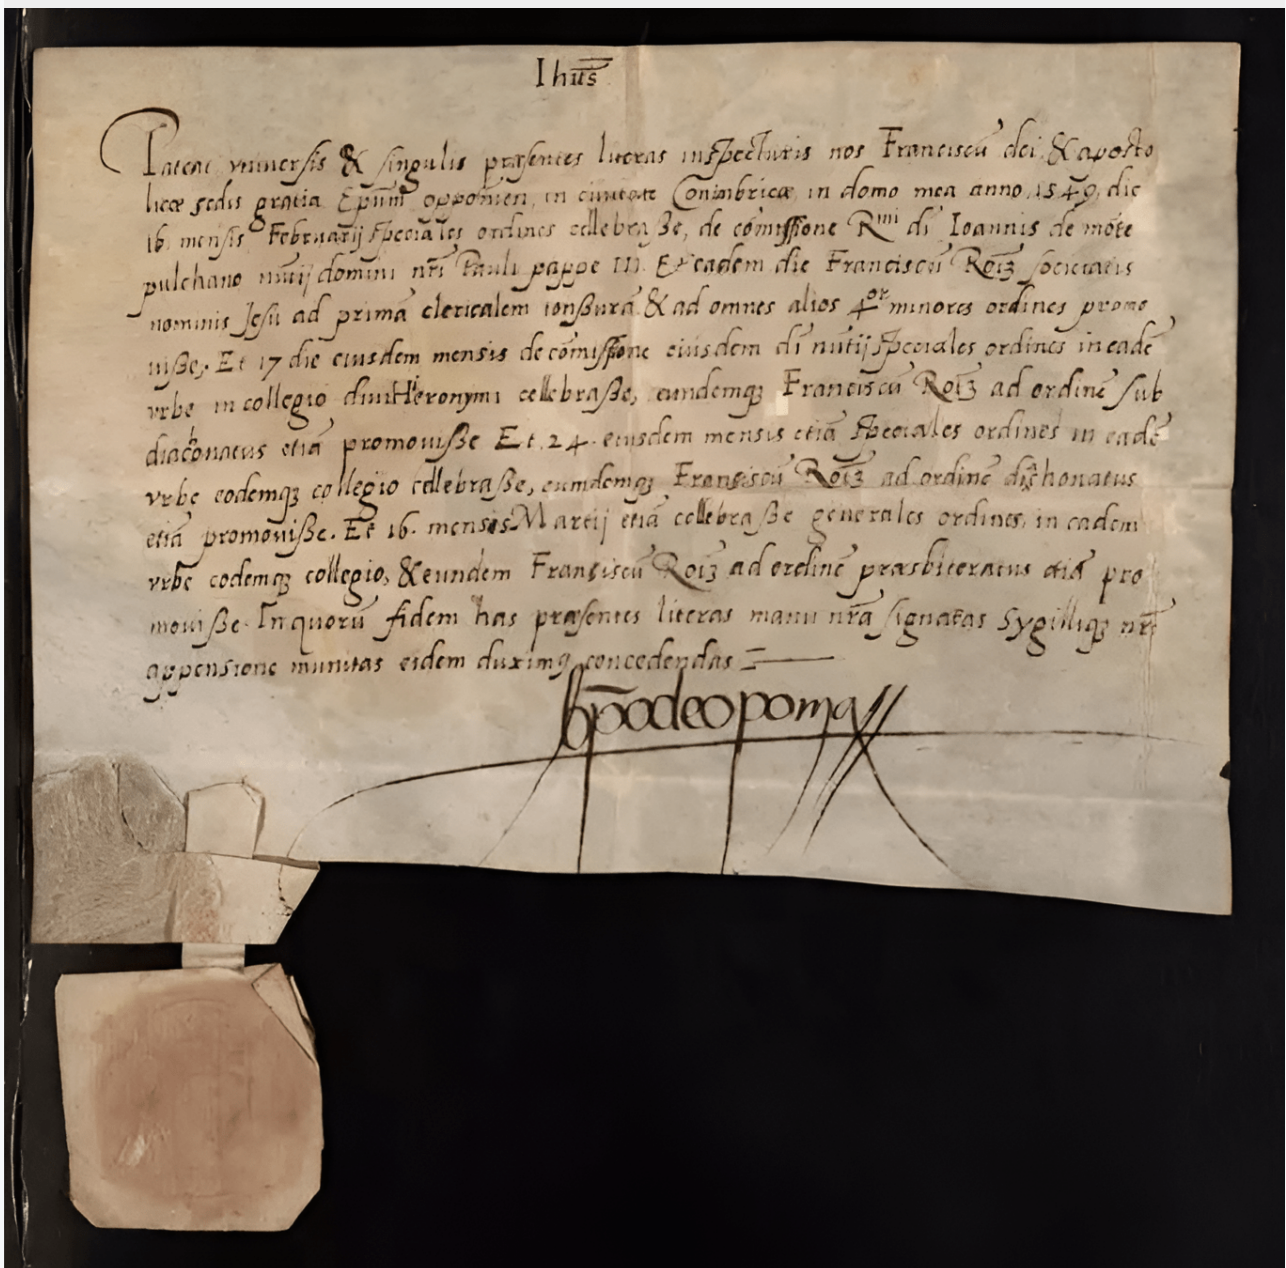 Ihūs
Pateat vniversis & singulis præsentes literas inspecturis nos Franciscū dei & aposto
licæ sedis gratia Epūm opponien, in ciuitate Conimbricæ in domo mea anno 1549, die
16 mensis Februarij speciales ordines cellebraße, de cōmissione Rmi dī Ioannis de mōte
pulchano nūtij domini nrī Pauli pappe III. Et eadem die Franciscū Roīz societatis
nominis Jesu ad primā clericalem tonßurā & ad omnes alios 4or minores ordines promo
uiße, Et 17 die eiusdem mensis de cōmissione eiusdem dī nūtij speciales ordines in eadē
vrbe in collegio diui Hieronymi cellebraße, eundemqʒ Franciscū Roīz ad ordinē sub
diacōnatus etiā promouiße Et 24. eiusdem mensis etiā speciales ordines in eadē
vrbe eodemqʒ collegio cellebraße, eumdemqʒ Franciscū Roīz ad ordinē honatus
etiā promouiße. Et 16. mensis Martij etiā cellebraße generales ordines, in eadem
vrbe eodemqʒ collegio, & eundem Franciscū Roīz ad ordinē præsbiteratus etiā pro
mouiße. In quorū fidem has præsentes literas manu nrā signatas Sygilliqʒ nrī
appensione munitas eidem duximꝯ concedendas